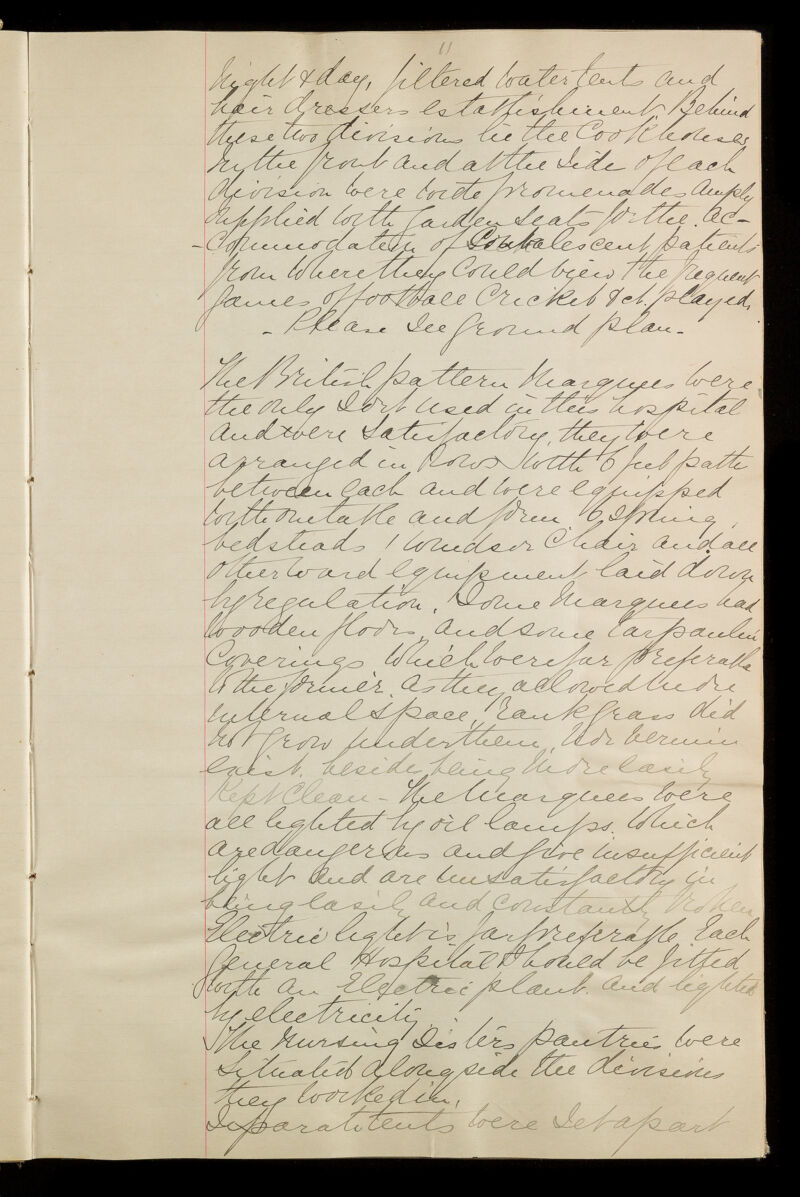 11
night & day, filtered water tents and
hair dressers establishment. Behind
these two divisions lie the Cook houses
In the front and at the side of each
division were wide promenades amply
supplied with garden seats for the ac-
-commodation of Convalescent patients
from where they could view the frequent
games of football Cricket &ct. played.
- Please see ground plan -
The British pattern Marquees were
the only sort used in this hospital
and were satisfactory, they were
arranged in rows with 6 feet path
between each and were equipped
with one table and form 6 spring
bedsteads 1 Windsor Chair and all
other ward equipment laid down
by regulation. Some Marquees had
wooden floors and some tarpaulin
Coverings which were far preferable
to the former as they allowed more
internal space, Rank grass did
not grow under them, nor vermin
exist, besides being more easily
Kept Clean - The Marquees were
all lighted by oil lamps. Which
are dangerous and give insufficient
light and are unsatisfactory in
being easily and constantly broken
Electric light is far preferable. Each
General Hospital should be fitted
with an Electric plant and lighted
by electricity
The Nursing Sisters pantries were
situated alongside the divisions
they worked in.
Separate tents were set apart